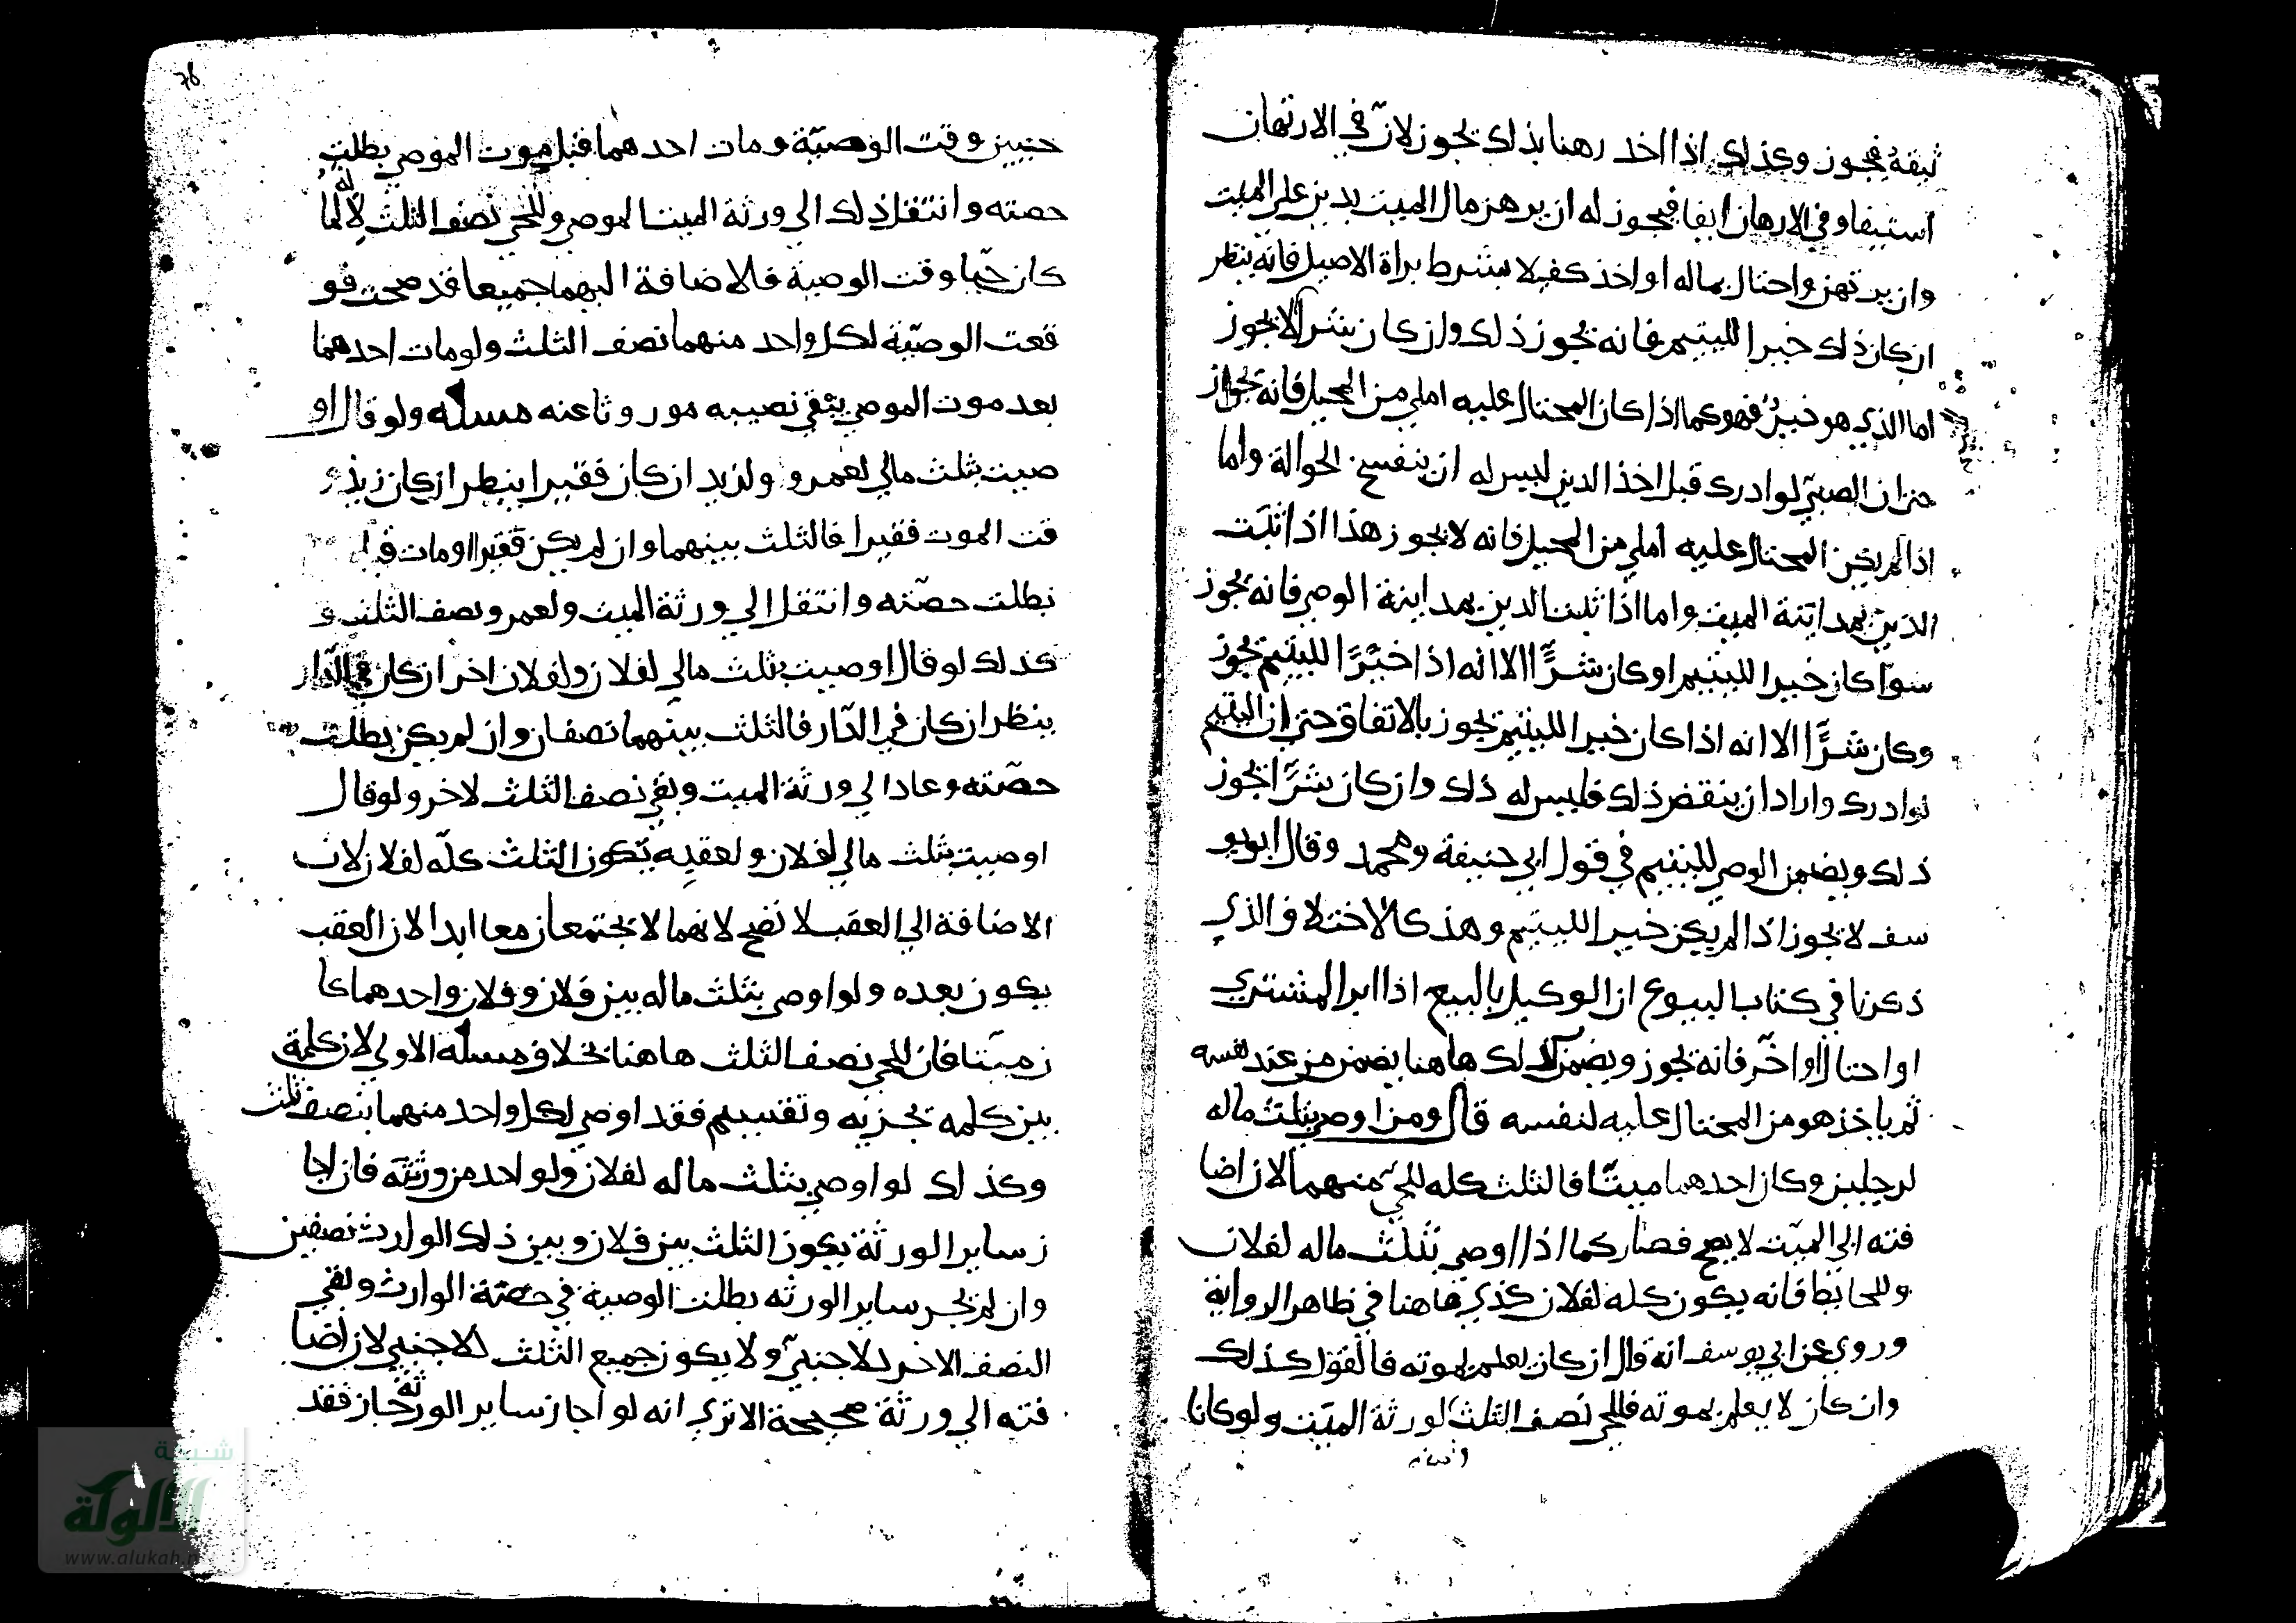 ثيقة فيجوز وكذلك اذا اخذ رهنا بذلك يجوز لان في الارتهان
استيفا وفي الارهان ايفا فيجوز له ان يرهن مال الميت بدين على الميت
وان يرتهن واحتال بماله او اخذ كفيلا بشرط براة الاصيل فانه ينظر
ان كان ذلك خيرا لليتيم فانه يجوز ذلك وان كان شرا لا يجوز
اما الذي هو خير فهو كما اذا كان المحتال عليه املى من المحيل فانه يجوز
حتى ان الصبي لو ادرك قبل اخذ الدين ليس له ان يفسخ الحوالة واما
اذا لم يكن المحتال عليه املى من المحيل فانه لا يجوز هذا اذا ثبت
الدين بمداينة الميت واما اذا ثبت الدين بمداينة الوصي فانه يجوز
سوا كان خيرا لليتيم او كان شرًّا الا انه اذا خيرًا لليتيم يجوز
وكان شرًّا الا انه اذا كان خيرا لليتيم يجوز بالاتفاق حتى ان اليتيم
لوادرك واراد ان ينقض ذلك فليس له ذلك وان كان شرًّا يجوز
ذلك ويضمن الوصي لليتيم في قول ابي حنيفة ومحمد وقال ابويو
سف لا يجوز اذا لم يكن خيرا لليتيم وهذ كالاختلاف الذي
ذكرنا في كتاب البيوع ان الوكيل بالبيع اذا ابرا المشتري
او احتال او اخّر فانه يجوز ويضمن كذلك هاهنا يضمن من عند نفسه
ثم ياخذ هو من المحتال عليه لنفسه قال ومن اوصى بثلث ماله
لرجلين وكان احدهما ميتًا فالثلث كله للحي منهما لان اضا
فته الى الميت لا يصح فصار كما اذا اوصى بثلث ماله لفلان
وللحايط فانه يكون كله لفلان كذي هاهنا في ظاهر الرواية
وروي عن ابي يوسف انه قال ان كان يعلم بموته فالقول كذلك
وان كان لا يعلم بموته فللحي نصف الثلث لورثة الميت ولو كانا
78
حيين وقت الوصيّة ومات احدهما قبل موت الموصي بطلت
حصته وانتقل ذلك الى ورثة الميت الموصي وللحي نصف الثلث لانه لما
كان حيا وقت الوصية فالاضافة اليهما جميعا قد صحت فو
قعت الوصيّة لكل واحد منهما نصف الثلث ولو مات احدهما
بعد موت الموصي يبقى نصيبه موروثا عنه مسله ولو قال او
صيت بثلث مالي لعمرو ولزيد ان كان فقيرا ينظر ان كان زيد و
قت الموت فقيرا فالثلث بينهما وان لم يكن فقيرا او مات قبل
بطلت حصّته وانتقل الى ورثة الميت ولعمرو نصف الثلث و
كذلك لو قال اوصيت بثلث مالي لفلان ولفلان اخر ان كان في الدار
ينظر ان كان في الدّار فالثلث بينهما نصفان وان لم يكن بطلت
حصّته وعاد الى ورثة الميت وبقي نصف الثلث لاخر ولو قال
اوصيت بثلث مالي لفلان ولعقبه يكون الثلث كلّه لفلان لان
الاضافة الى العقب لا تصح لانهما لا يجتمعان معا ابدا لان العقب
يكون بعده ولو اوصى بثلث ماله بين فلان وفلان واحدهما كا
ن ميتا فان للحي نصف الثلث هاهنا بخلاف مسله الاولى لان كلمة
بين كلمه تجزيه وتقسيم فقد اوصى لكل واحد منهما بنصف ثلث
وكذلك لو اوصى بثلث ماله لفلان ولواحد من ورثته فان اجا
ز ساير الورثة يكون الثلث بين فلان وبين ذلك الوارث نصفين
وان لم يجز ساير الورثه بطلت الوصية في حصّة الوارث وبقي
النصف الاخر للاجنبي ولا يكون جميع الثلث للاجنبي لان اضا
فته الى ورثة صحيحة الا ترى انه لو اجاز ساير الورثة جاز فقد
شبكة
الألوكة
www.alukah.n